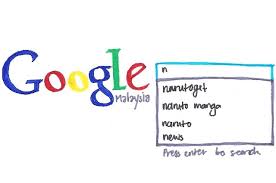 Google
Malaysia
n
narutoget
naruto manga
naruto
news
Press enter to search